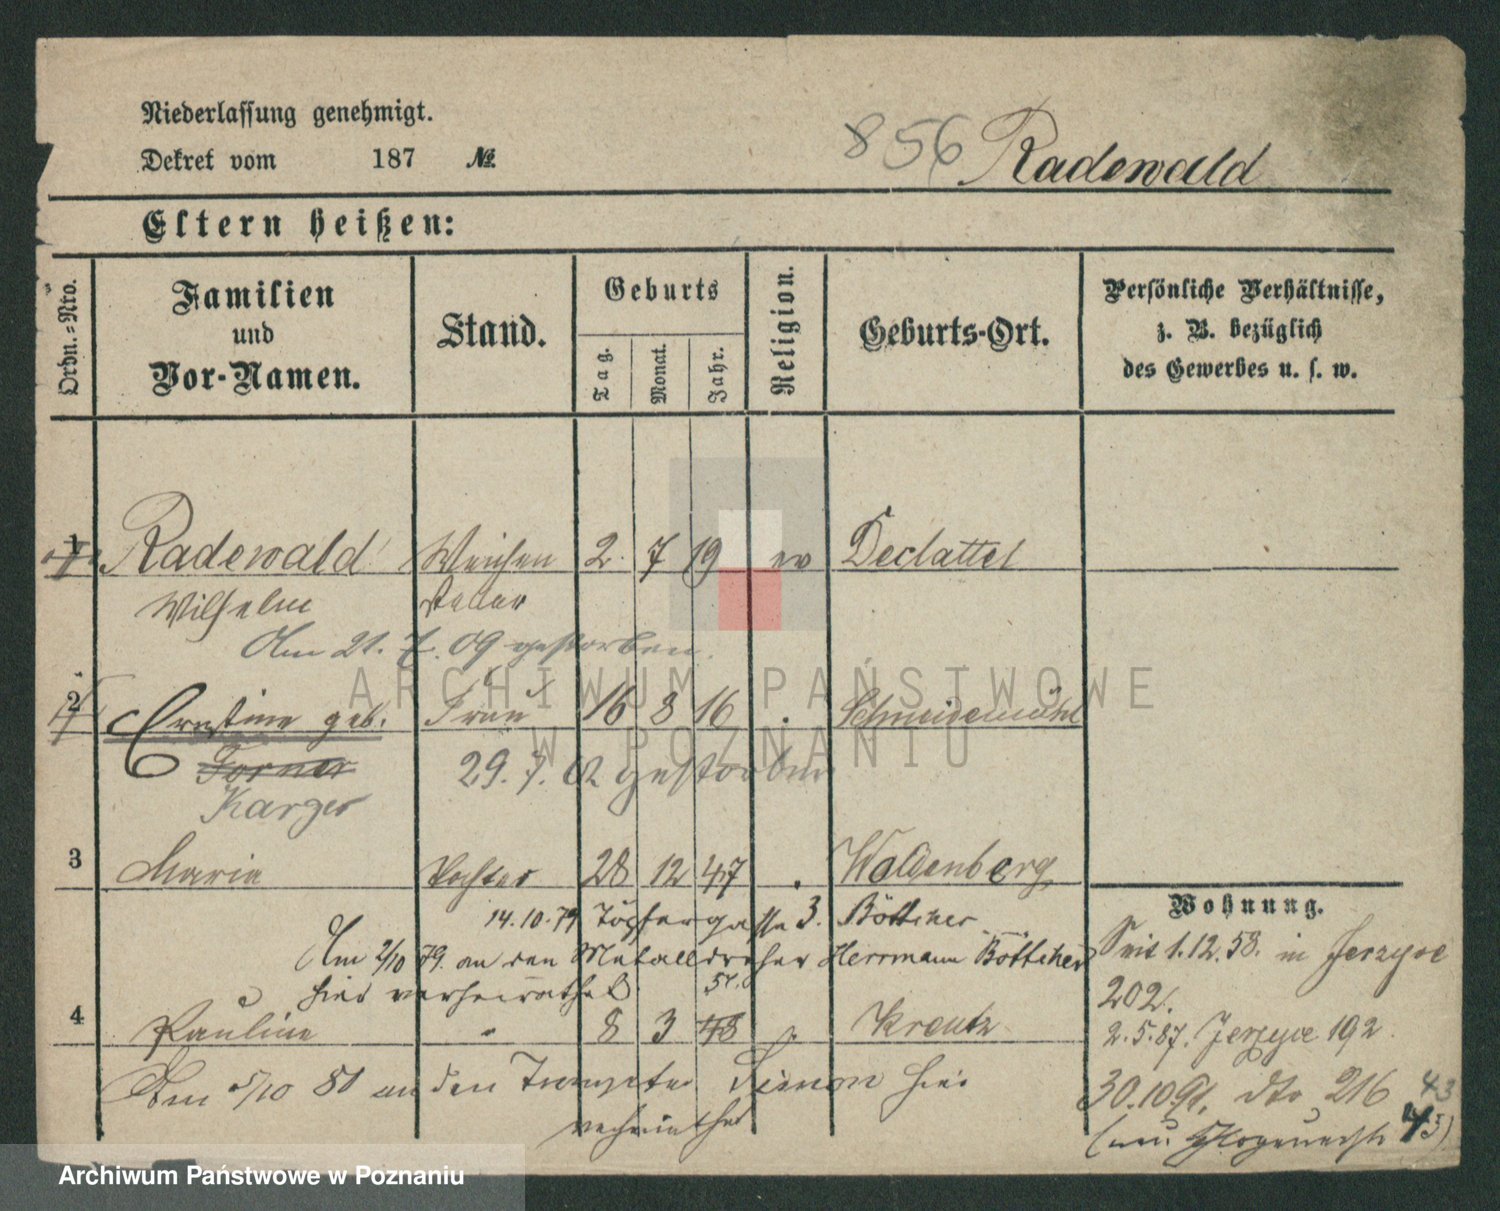 Niederlassung genehmigt.
Dekret vom 187 №
856 Radewald
Eltern heißen:
Ordn.=Nro.
Familien und Vor-Namen.
Stand.
Geburts
Tag.
Monat.
Jahr.
Religion.
Geburts-Ort.
Persönliche Verhältnisse,
z. B. bezüglich
des Gewerbes u. s. w.
1 Radewald Weichen 2. 7 19 ev
Wilhelm steller
Am 21. 7. 09 gestorben.
2 Ernestine geb. Frau 16 8 16 Schneidemühl
29. 7. 02 gestorben
Karger
3 Maria Tochter 28 12 47 Waldenberg
14.10.79 Töpfergasse 3. Böttcher
Am 2/10 79. an den Metalldreher Herrmann Böttcher
hier verheirathet. 51.
4 Pauline " 8 3 48 Kreutz
Am 5/10 80 an den Trompeter Simon hier
verheirathet
Wohnung.
Seit 1.12.58. in Jerzyce
202.
2.5.87. Jerzyce 192
30.10.91. dto 216 43
(neu 43)
ARCHIWUM PAŃSTWOWE
W POZNANIU
Archiwum Państwowe w Poznaniu